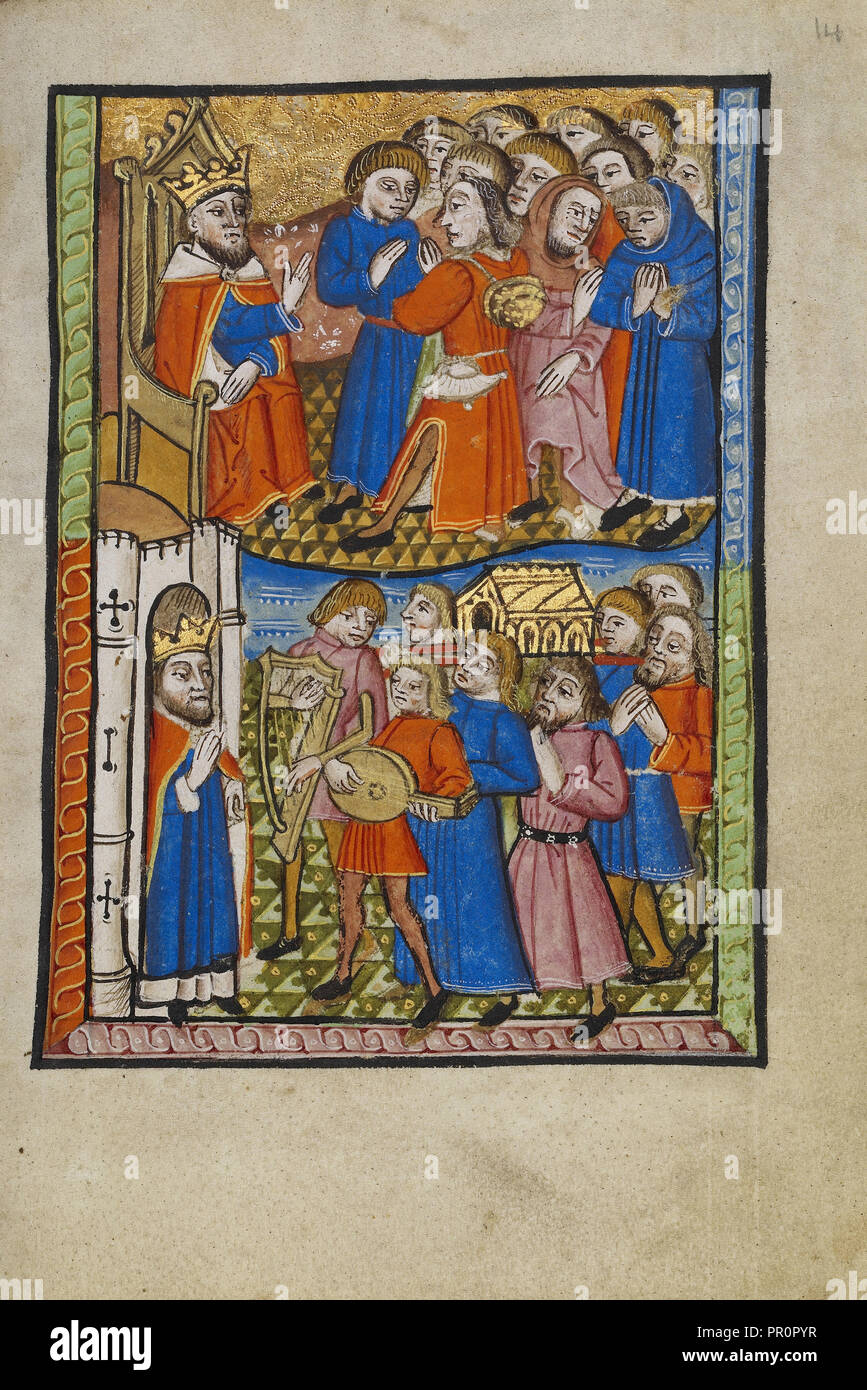 14
alamy
Image ID: PR0PYR
www.alamy.com